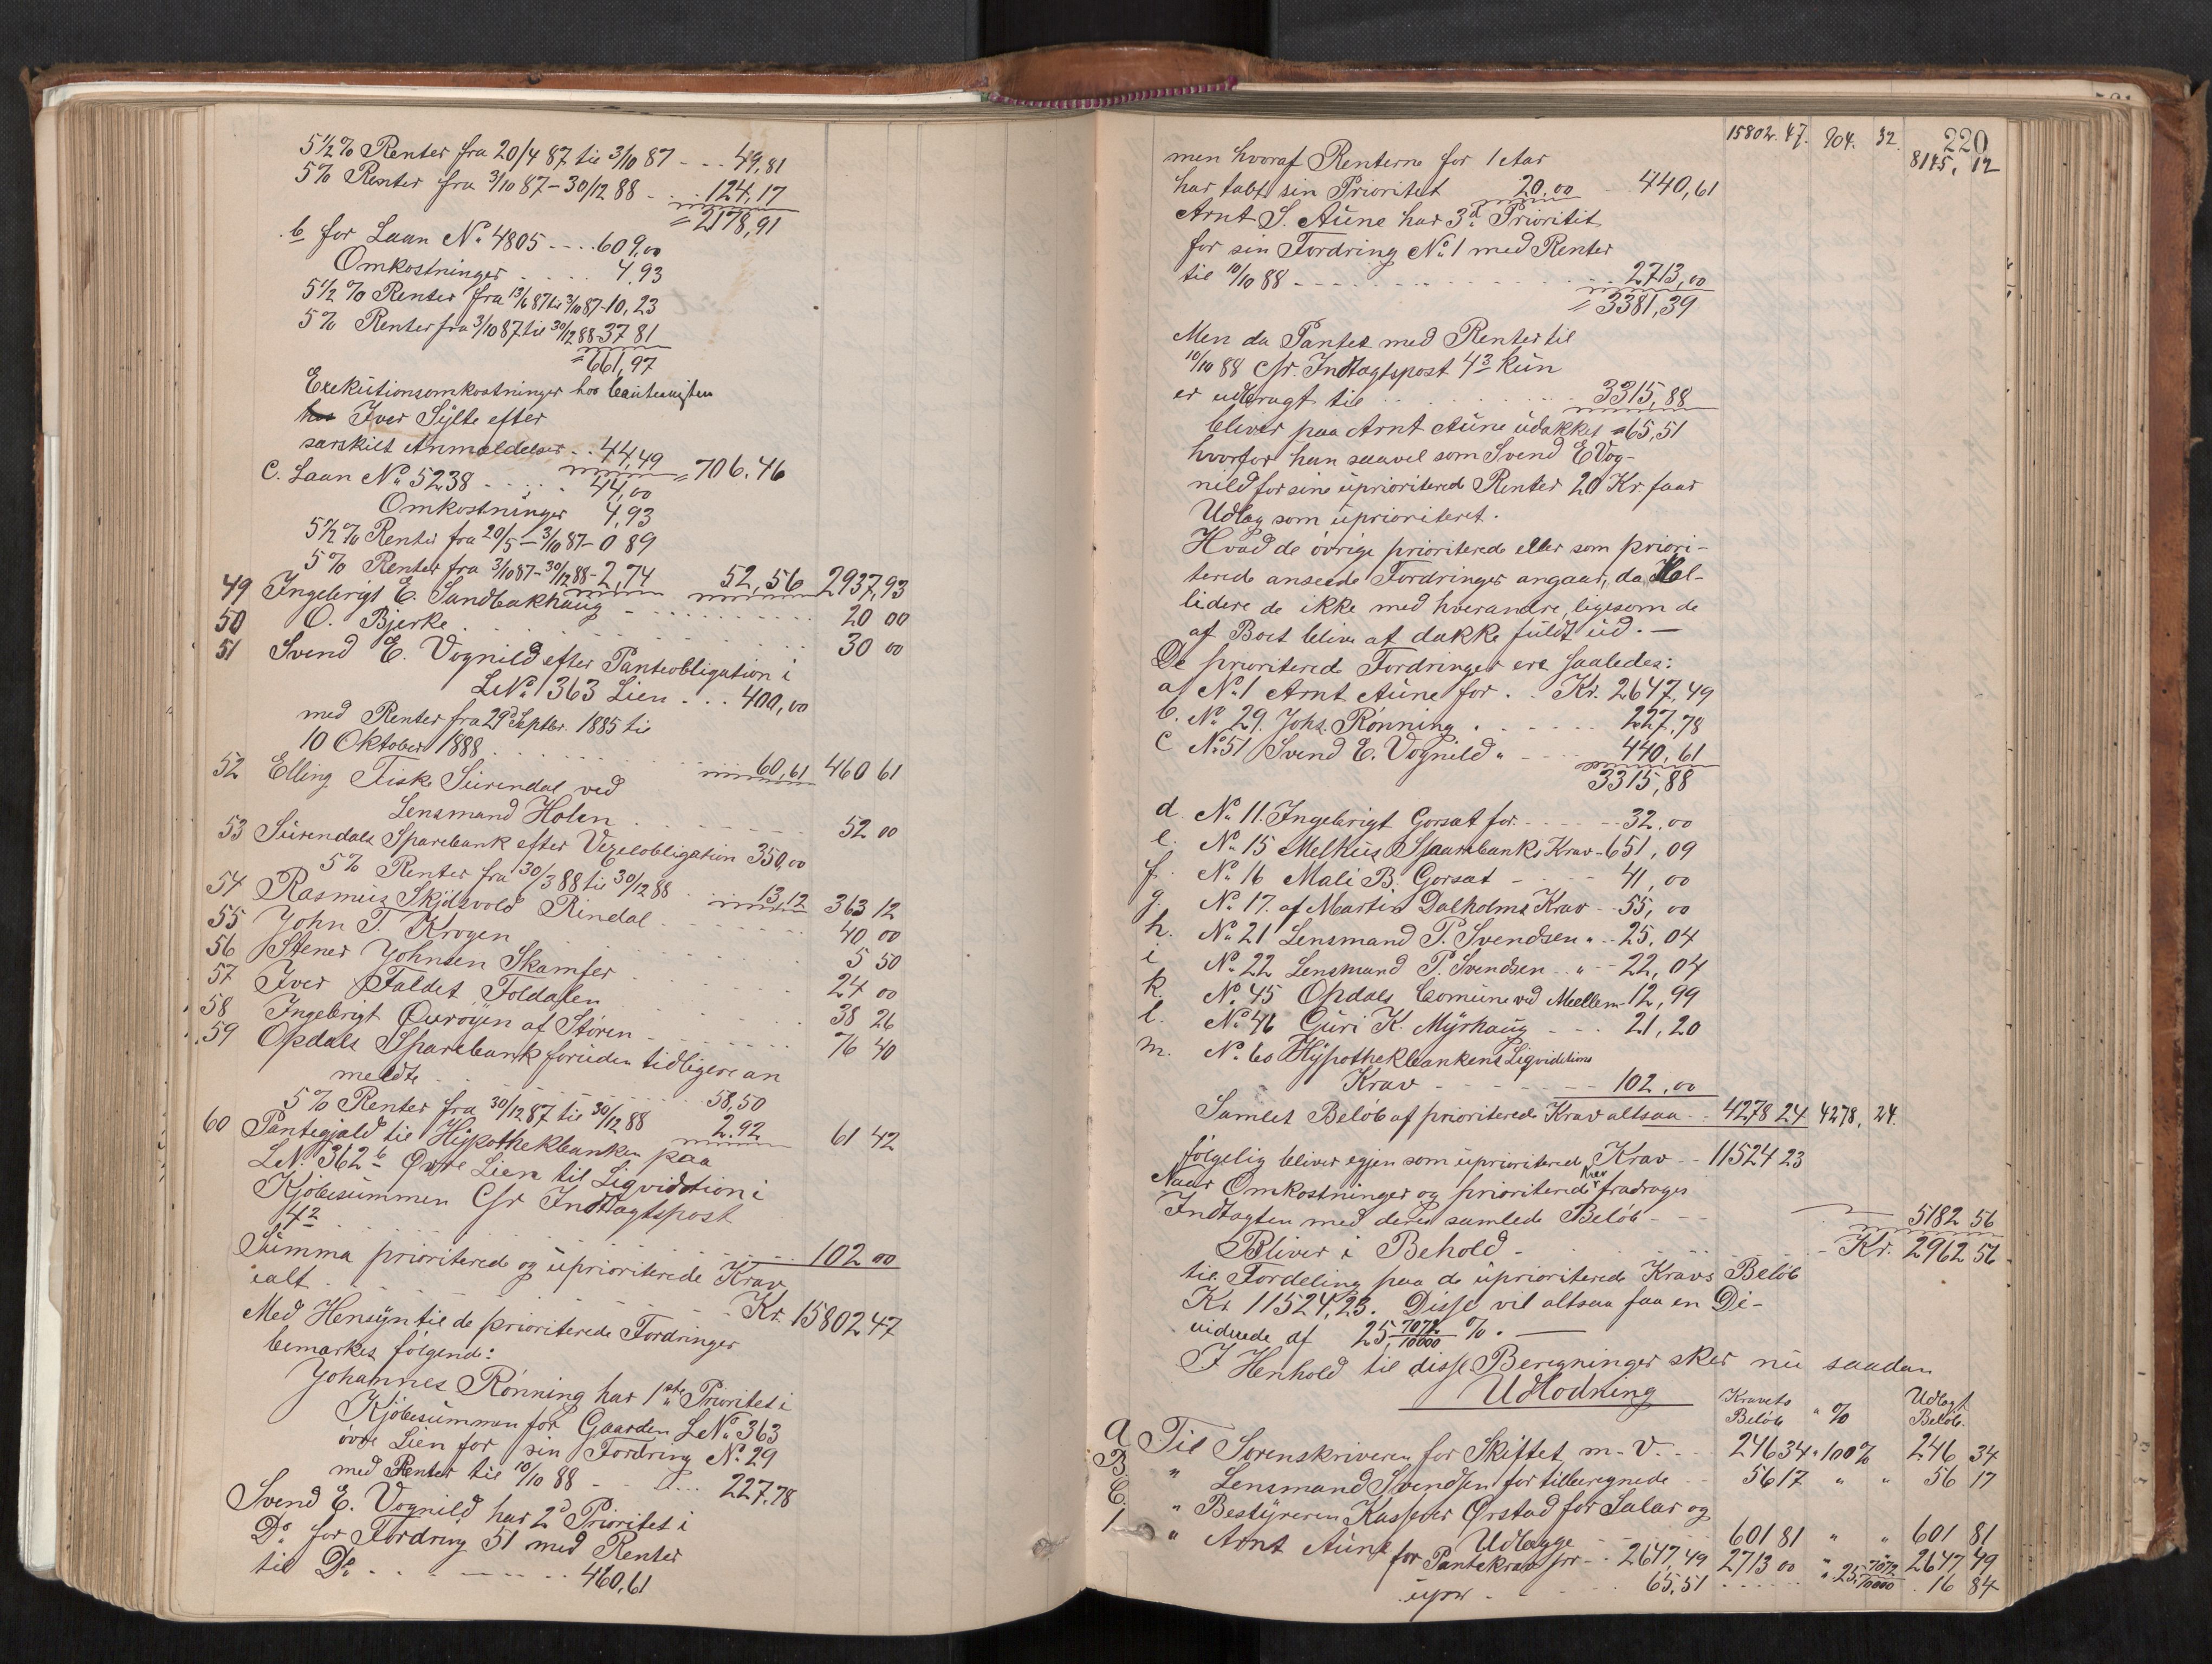 5 1/2 % Renter fra 20/4 87 til 3/10 87 - - . 49,81
5 % Renter fra 3/10 87 - 30/12 88 - . . 124,17
= 2178,91
b for Laan No 4805 - - . . 609,00
Omkostninger . . . . . 4,93
5 1/2 % Renter fra 13/6 87 til 3/10 87 - 10,23
5 % Renter fra 3/10 87 til 30/12 88 - 37 81
= 661,97
Exekutionsomkostninger hos Cautionisten
Iver Sylte efter
særskilt Anmeldelse - . . 44,49 = 706.46
C. Laan No 5238 - - . . . 44,00
Omkostninger 4,93
5 1/2 % Renter fra 20/5 - 3/10 87 - 0 89
5 % Renter fra 3/10 87 - 30/12 88 - 2,74 52,56 2937,93
49 Ingebrigt E. Sandbakhaug - . . . . . . 20 00
50 O. Bjerke . . . . . . 30 00
51 Svend E. Vognild efter Panteobligation i
LNo 363 Lien . . . 400,00
med Renter fra 29d Septbr. 1885 til
10 Oktober 1888 . . . . 60,61 460 61
52 Elling Fiske Surendal ved
Lensmand Holen . . . . . . 52 00
53 Surendals Sparebank efter Vexelobligation 350,00
5 % Renter fra 30/3 88 til 30/12 88 . . 13,12 363 12
54 Rasmus Skjølsvold Rindal . . . . . 40 00
55 John T. Krogen . . . . . 5 50
56 Stener Johnsen Skamfer . . . . . 24 00
57 Iver Faldet Foldalen . . . . . 38 26
58 Ingebrigt Øurøyen af Støren . . . . . 76 40
59 Opdals Sparebank foruden tidligere an
meldte . . . . . . 58,50
5 % Renter fra 30/12 87 til 30/12 88 2.92 61 42
60 Pantegjæld til Hypothekbanken paa
LNo 362 b Øvre Lien til Liqvidation i
Kjøbesummen Cfr Indtægtspost
4 2 . . . . . . 102 00
Summa prioriterede og uprioriterede Krav
ialt . . . . . . Kr. 15802 47
Med Hensyn til de prioriterede Fordringer
bemærkes følgende:
Johannes Rønning har 1ste Prioritet i
Kjøbesummen for Gaarden LNo 363
øvre Lien for sin Fordring No 29
med Renter til 10/10 88 - - . . . 227.78
Svend E. Vognild har 2d Prioritet i
Do for Fordring 51 med Renter
til Do . . . - - . . . 460,61
15802. 47. 904. 32. 220
8145, 12
men hvoraf Renterne for 1 Aar
har tabt sin Prioritet 20,00 - 440,61
Arnt S. Aune har 3d Prioritet
for sin Fordring No 1 med Renter
til 10/10 88 - - . . . . . . 2713,00
= 3381,39
Men da Pantet med Renter til
10/10 88 cfr. Indtægtspost 4 3 kun
er udbragt til . . . . . . 3315,88
bliver paa Arnt Aune udækket = 65,51
hvorfor han saavel som Svend E Vog-
nild for sine uprioriterede Renter 20 Kr. faar
Udlæg som uprioriteret.
Hvad de øvrige prioriterede eller som priori-
terede ansede Fordringer angaar, da kol-
lidere de ikke med hverandre, ligesom de
af Boet blive af dække fuldt ud. —
De prioriterede Fordringer ere saaledes:
a No 1 Arnt Aune for . . Kr. 2647,49
b. No 29. Johs. Rønning . . . . . 227,78
c No 51 Svend E. Vognild " - . . 440,61
3315,88
d. No 11. Ingebrigt Gorsæt for . . . . 32,00
e. No 15 Melhus Sparebanks Krav - 651,09
f. No 16 Mali B. Gorsæt - . . . 41,00
g. No 17. af Martin Dalholms Krav - - 55,00
h. No 21. Lensmand P. Svendsen " - - 25,04
i No 22 Lensmand P. Svendsen - " - - 22,04
k. No 45 Opdals Comune ved Mellem - 12,99
l. No 46 Guri K. Myrhaug - - . . 21,20
m. No 60 Hypothekbankens Liqvidations
Krav - - - - - - 102,00
Samlet Beløb af prioriterede Krav altsaa - - 4278 24 4278, 24.
følgelig bliver igjen som uprioriterede Krav - - 11524 23
Naar Omkostninger og prioriterede Krav fradrages
Indtægten med deres samlede Beløb - - - 5182 56
Bliver i Behold - . . . . . - Kr. 2962 56
til Fordeling paa de uprioriterede Kravs Beløb
Kr 11524,23. Disse vil altsaa faa en Di-
vidende af 25, 7072/10000 %. —
I Henhold til disse Beregninger sker nu saadan
Udlodning
Kravets Beløb " % Udlagt Beløb.
A Til Sorenskriveren for Skiftet m. v. - . . 246 34 " 100 % 246 34
B. " Lensmand Svendsen for tilberegnede - - 56 17 " " 56 17
C. " Bestyreren Kasserer Ørstad for Salær og
Udlægge - - - - 601 81 " " 601 81
1 " Arnt Aune for Pantekrav pr - - 2647,49 2713 00 " 2647 49
upr - . . . . 65,51 . . . . . . 25, 7072/10000 . 16 84